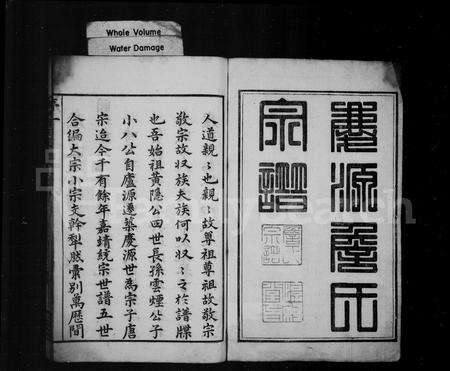 Whole Volume
Water Damage
慶源詹氏
宗譜
人道親﹦也親﹦故尊祖尊祖故敬宗
敬宗故収族夫族何以収﹦之於譜牒
也吾始祖黄隠公四世長孫雲煙公子
小八公自廬源遷築慶源世為宗子唐
宗迄今千有餘年嘉靖統宗世譜五世
合編大宗小宗支幹犁然彙別萬厯間